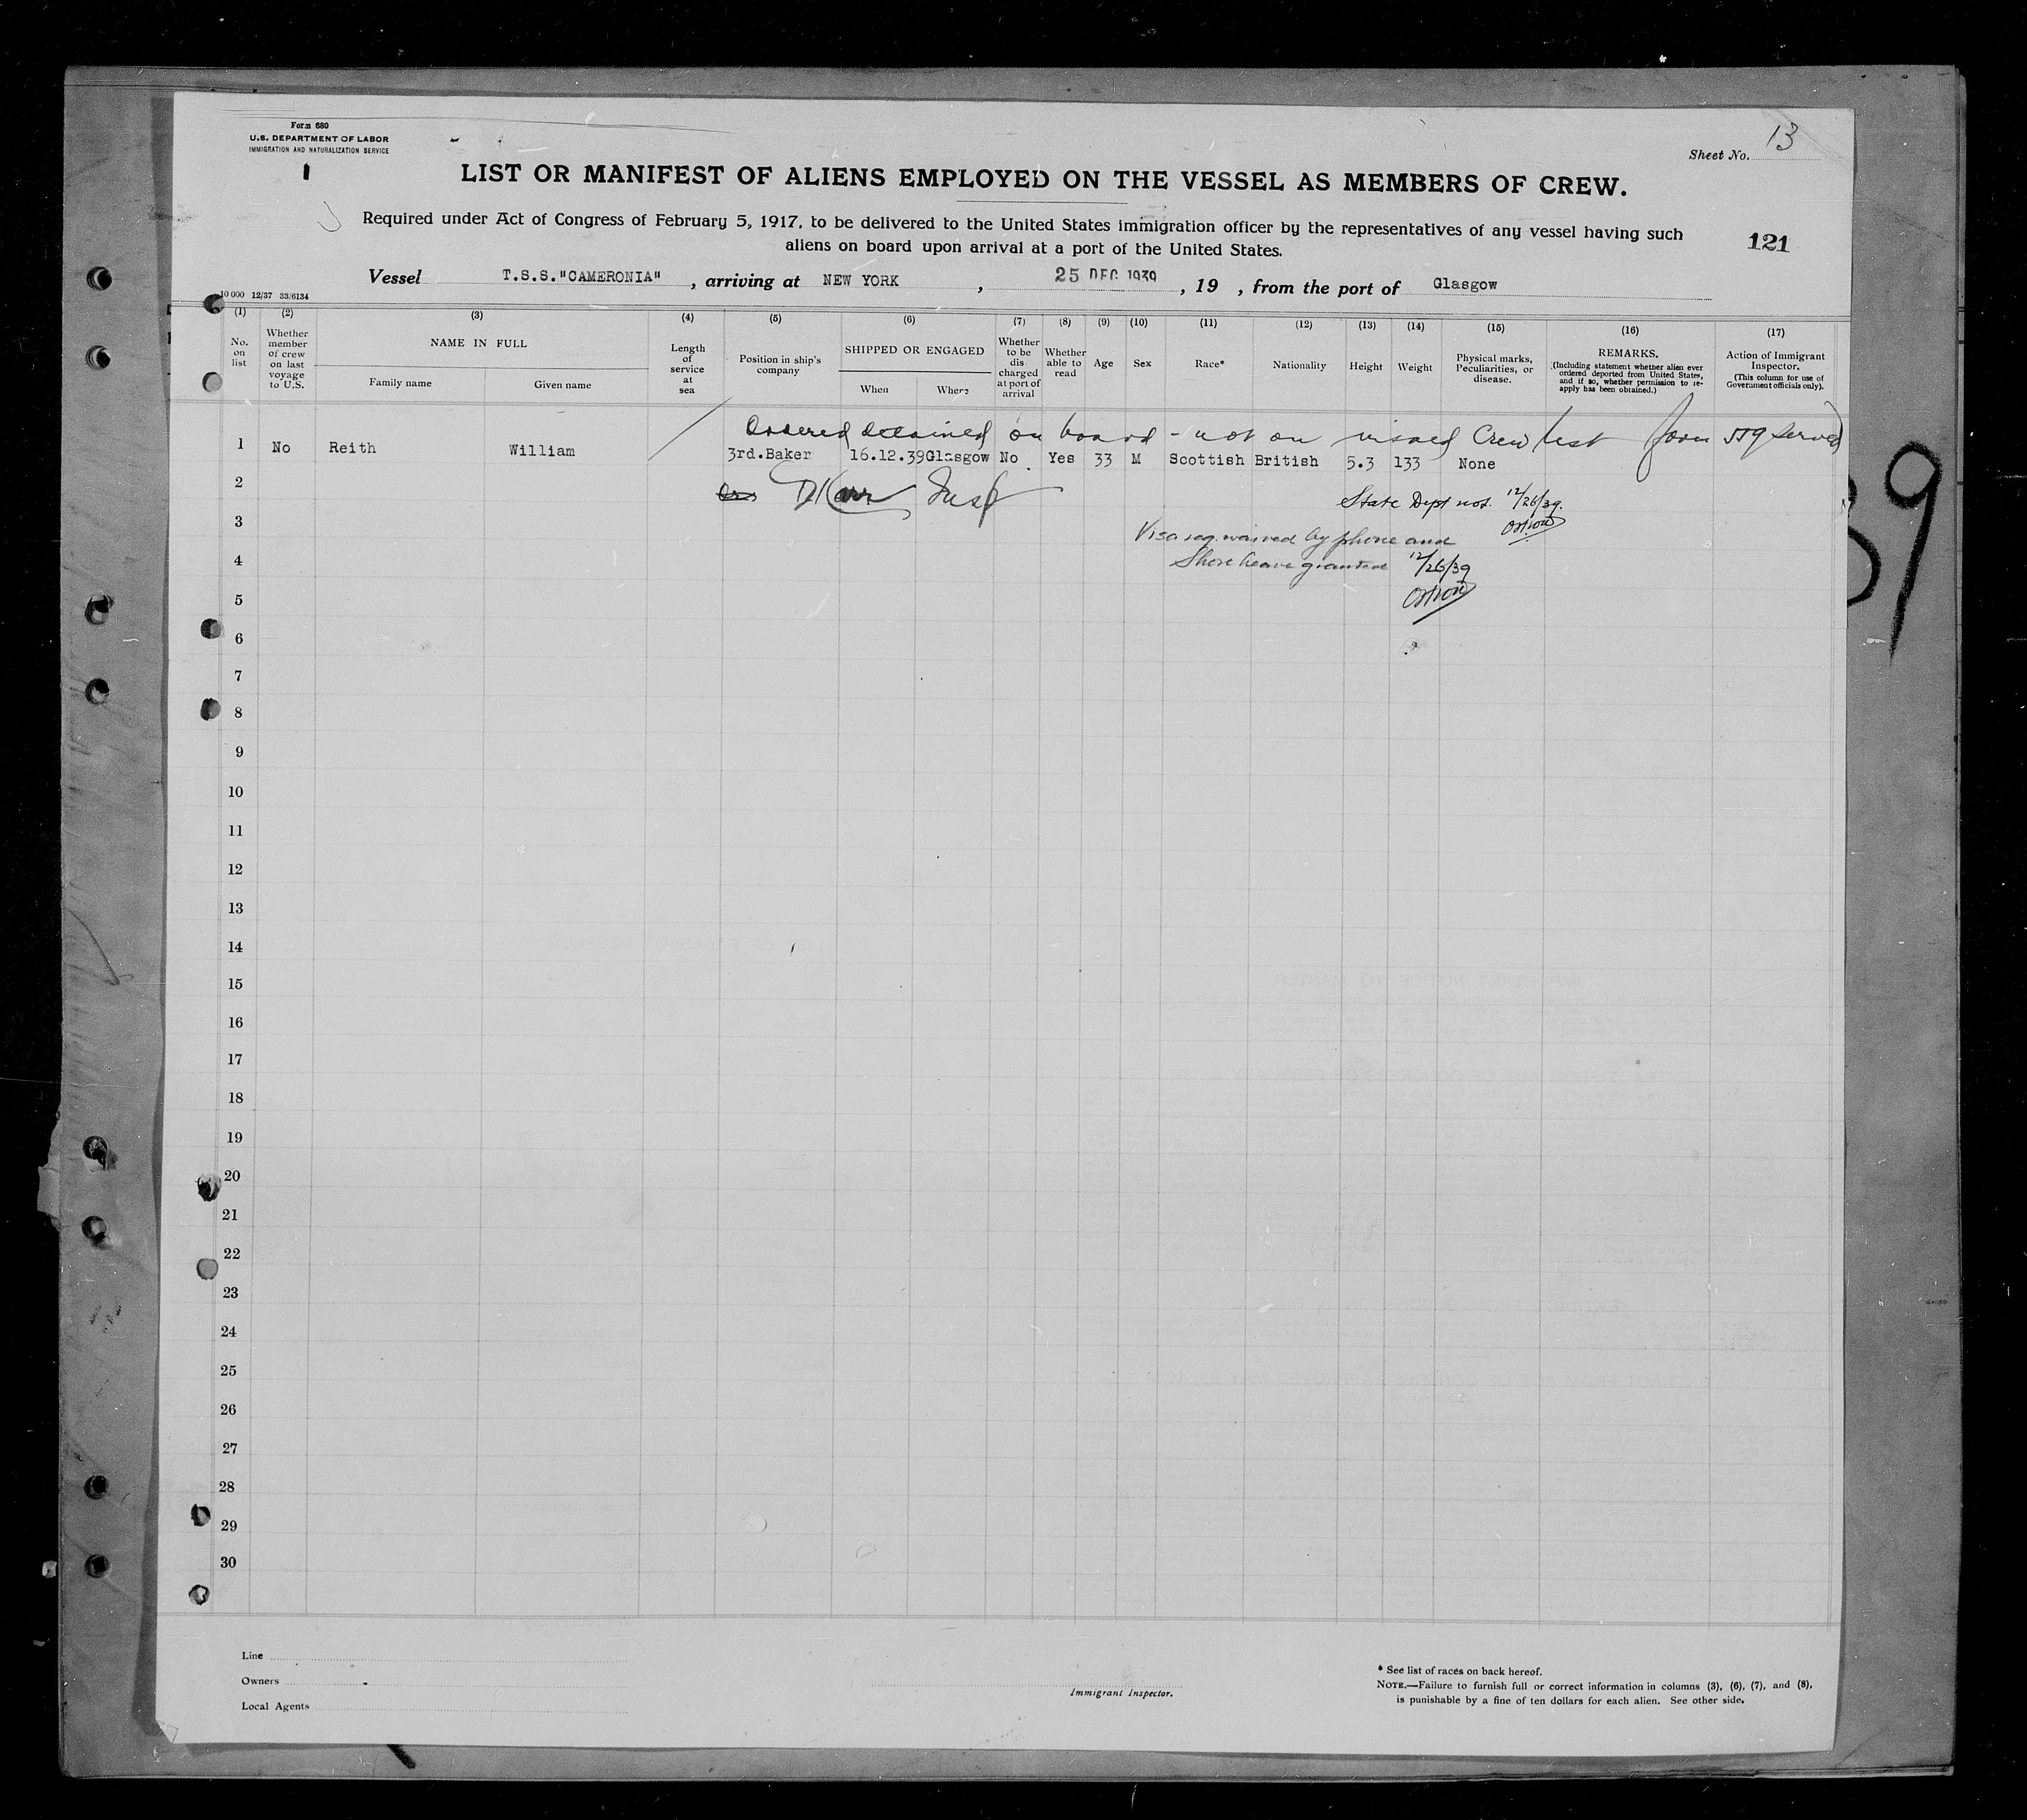 Form 680
U.S. DEPARTMENT OF LABOR
IMMIGRATION AND NATURALIZATION SERVICE
Sheet No. 13
LIST OR MANIFEST OF ALIENS EMPLOYED ON THE VESSEL AS MEMBERS OF CREW.
Required under Act of Congress of February 5, 1917, to be delivered to the United States immigration officer by the representatives of any vessel having such
aliens on board upon arrival at a port of the United States.
121
Vessel T.S.S."CAMERONIA" , arriving at NEW YORK , 25 DEC 1939 , 19 , from the port of Glasgow
10 000 12/37 33/6134
(1) (2) (3) (4) (5) (6) (7) (8) (9) (10) (11) (12) (13) (14) (15) (16) (17)
No. on list
Whether member of crew on last voyage to U.S.
NAME IN FULL
Family name
Given name
Length of service at sea
Position in ship's company
SHIPPED OR ENGAGED
When
Where
Whether to be dis charged at port of arrival
Whether able to read
Age
Sex
Race*
Nationality
Height
Weight
Physical marks, Peculiarities, or disease.
REMARKS.
(Including statement whether alien ever ordered deported from United States, and if so, whether permission to re-apply has been obtained.)
Action of Immigrant Inspector.
(This column for use of Government officials only).
Ordered detained on board - not on visaed Crew list (form 559 served)
1 No Reith William 3rd.Baker 16.12.39 Glasgow No Yes 33 M Scottish British 5.3 133 None
2
Insp
State Dept not. 12/26/39.
3
Visa req. waived by phone and
4
Shore leave granted 12/26/39
5
6
7
8
9
10
11
12
13
14
15
16
17
18
19
20
21
22
23
24
25
26
27
28
29
30
Line
Owners
Local Agents
Immigrant Inspector.
* See list of races on back hereof.
NOTE.—Failure to furnish full or correct information in columns (3), (6), (7), and (8),
is punishable by a fine of ten dollars for each alien. See other side.
39